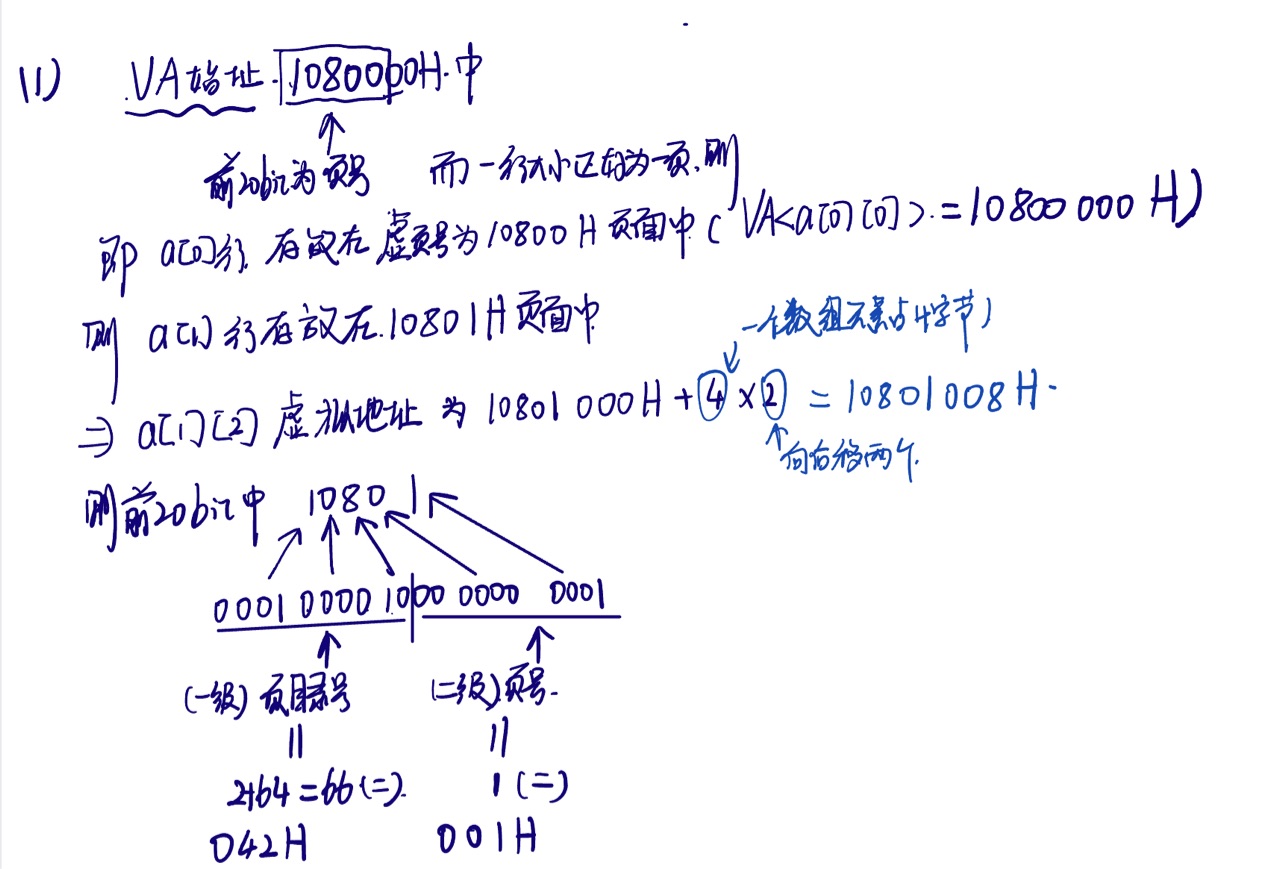 (1) VA始址 10800000H 中
前20bit为页号 而一行大小正好为一页, 则
即 a[0]行 存放在虚页号为10800H页面中 ( VA<a[0][0]> = 10800 000 H)
则 a[1]行存放在 10801H 页面中
一个数组元素占4字节
⇒ a[1][2] 虚拟地址为 10801 000H + 4 × 2 = 10801008H.
向右移两个.
则前20bit中 1080 1
0001 0000 10|00 0000 0001
(一级) 页目录号 (二级)页号.
|| ||
2+64=66(二). 1 (二)
042H 001H